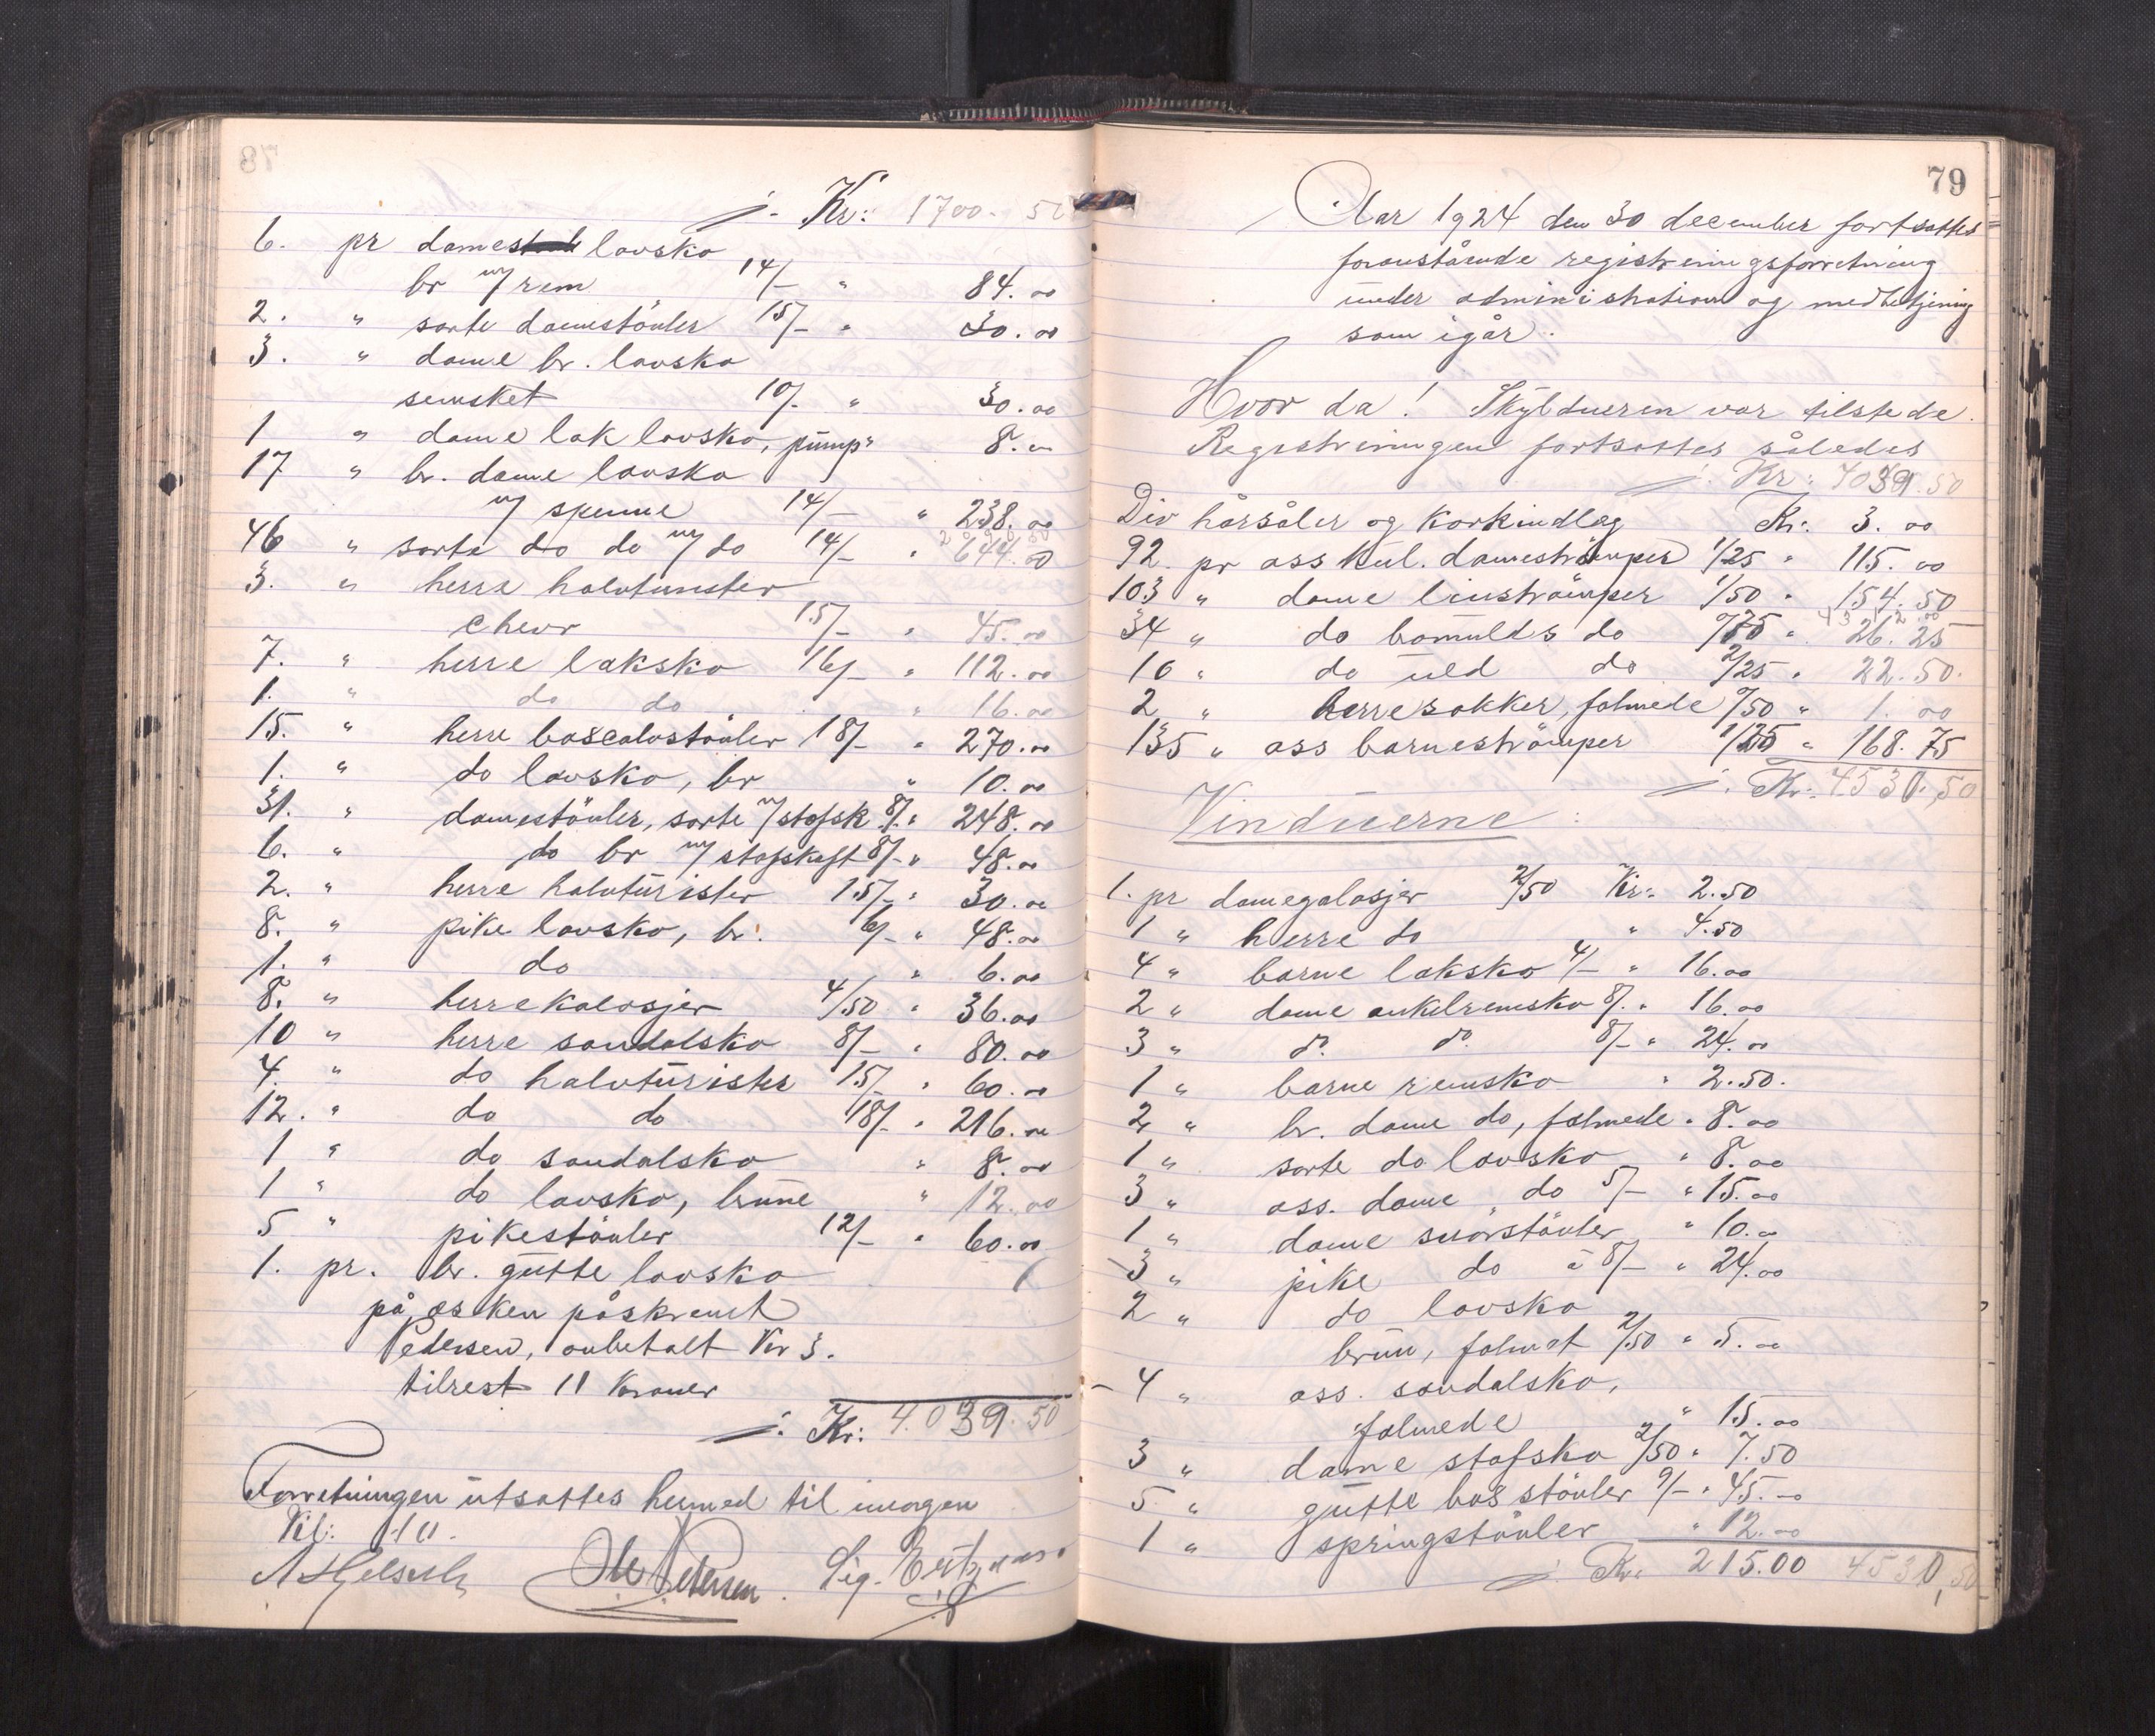 78
/. Kr: 1700. 50
6. pr dame lavsko
br m/ rem 14/- " 84.00
2. " sorte damestövler 15/- " 30.00
3. " dame br. lavsko
semsket 10/- " 30.00
1 " dame lak lavsko, pump " 8.00
17 " br. dame lavsko
m/ spenne 14/- " 238.00
46 " sorte do do m/ do 14/- " 644.00
3. " herre halvturister
chevr 15/- " 45.00
7. " herre laksko 16/- " 112.00
1. " do do " 16.00
15. " herre boxcalvstövler 18/- " 270.00
1. " do lavsko, br " 10.00
31. " damestövler, sorte m/ stofsk. 8/- " 248.00
6. " do br m/ stofskaft 8/- " 48.00
2. " herre halvturister 15/- " 30.00
8. " pike lavsko, br. 6/- " 48.00
1. " do " 6.00
8. " herrekalosjer 4/50 " 36.00
10 " herre sandalsko 8/- " 80.00
4. " do halvturister 15/- " 60.00
12. " do do 18/- " 216.00
1 " do sandalsko " 8.00
1 " do lavsko, brune " 12.00
5 " pikestövler 12/- " 60.00
1. pr. br. gutte lavsko
på æsken påskrevet
Pedersen, anbetalt Kr 3.
tilrest 11 Kroner
/. Kr: 4.039.50
Forretningen utsattes hermed til imorgen
Kl: 10.
Ole Pedersen. Sig.
79
Aar 1924 den 30 december fortsattes
foranstående registreringsforretning
under administration og med betjening
som igår.
Hvor da! Skyldneren var tilstede.
Registreringen fortsattes således
/. Kr: 4039.50
Div hårsåler og korkindlæg Kr: 3.00
92. pr ass kul. dameströmper 1/25 " 115.00
103 " dame linströmper 1/50 " 154.50
34 " do bomulds do 0/75 " 26.25
10 " do uld do 2/25 " 22.50.
2 " herresokker, falmede 0/50 " 1.00
135 " ass barneströmper 1/25 " 168.75
/. Kr: 4530,50
Vinduerne:
1. pr damegalosjer 2/50 Kr: 2.50
1 " herre do " 4.50
4 " barne laksko 4/- " 16.00
2 " dame ankelremsko 8/- " 16.00
3 " do do 8/- " 24.00
1 " barne remsko " 2.50.
2 " br. dame do, falmede " 8.00
1 " sorte do lavsko " 8.00
3 " ass. dame do 5/- " 15.00
1 " dame snörstövler " 10.00
3 " pike do à 8/- " 24.00
2 " do lavsko
brun, falmet 2/50 " 5.00
4 " ass. sandalsko,
falmede " 15.00
3 " dame stofsko 2/50 " 7.50
5 " gutte box stövler 9/- " 45.00
1 " springstövler " 12.00
/. Kr. 215.00 4530,50